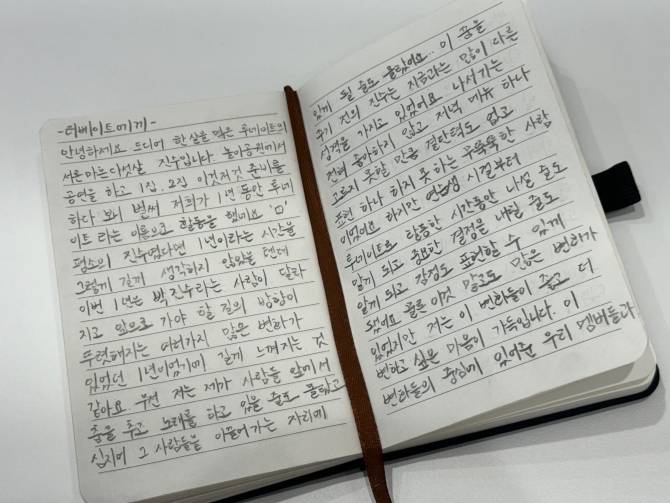 -러베이트에게-
안녕하세요. 드디어 한 살을 먹은 투네이트의
서른마흔다섯살 진수입니다. 놀이공원에서
공연을 하고 1집, 2집 이것저것 준비를
하다 보니 벌써 저희가 1년 동안 투네
이트 라는 이름으로 활동을 했네요 'ㅁ'
평소의 진수였다면 1년이라는 시간을
그렇게 길게 생각하지 않았을 텐데
이번 1년은 박진수라는 사람이 달라
지고 앞으로 가야 할 길의 방향이
뚜렷해지는 여러가지 많은 변화가
있었던 1년이었기에 길게 느껴지는 것
같아요. 우선 저는 제가 사람들 앞에서
춤을 추고 노래를 하고 있을 줄도 몰랐고
심지어 그 사람들을 이끌어가는 자리에
있게 될 줄도 몰랐어요.. 이 꿈을
꾸기 전의 진수는 지금과는 많이 다른
성격을 가지고 있었어요. 나서기는
전혀 좋아하지 않고 저녁 메뉴 하나
고르지 못할 만큼 결단력도 없고
표현 하나 하지 못 하는 무뚝뚝한 사람
이었어요. 하지만 연습생 시절부터
투네이트로 활동한 시간동안 나설 줄도
알게 되고 중요한 결정을 내릴 줄도
알게 되고 감정도 표현할 수 있게
됐어요. 물론 이것 말고도 많은 변화가
있었지만 저는 이 변화들이 좋고 더
변하고 싶은 마음이 가득입니다. 이
변화들의 중심에 있어준 우리 멤버들과